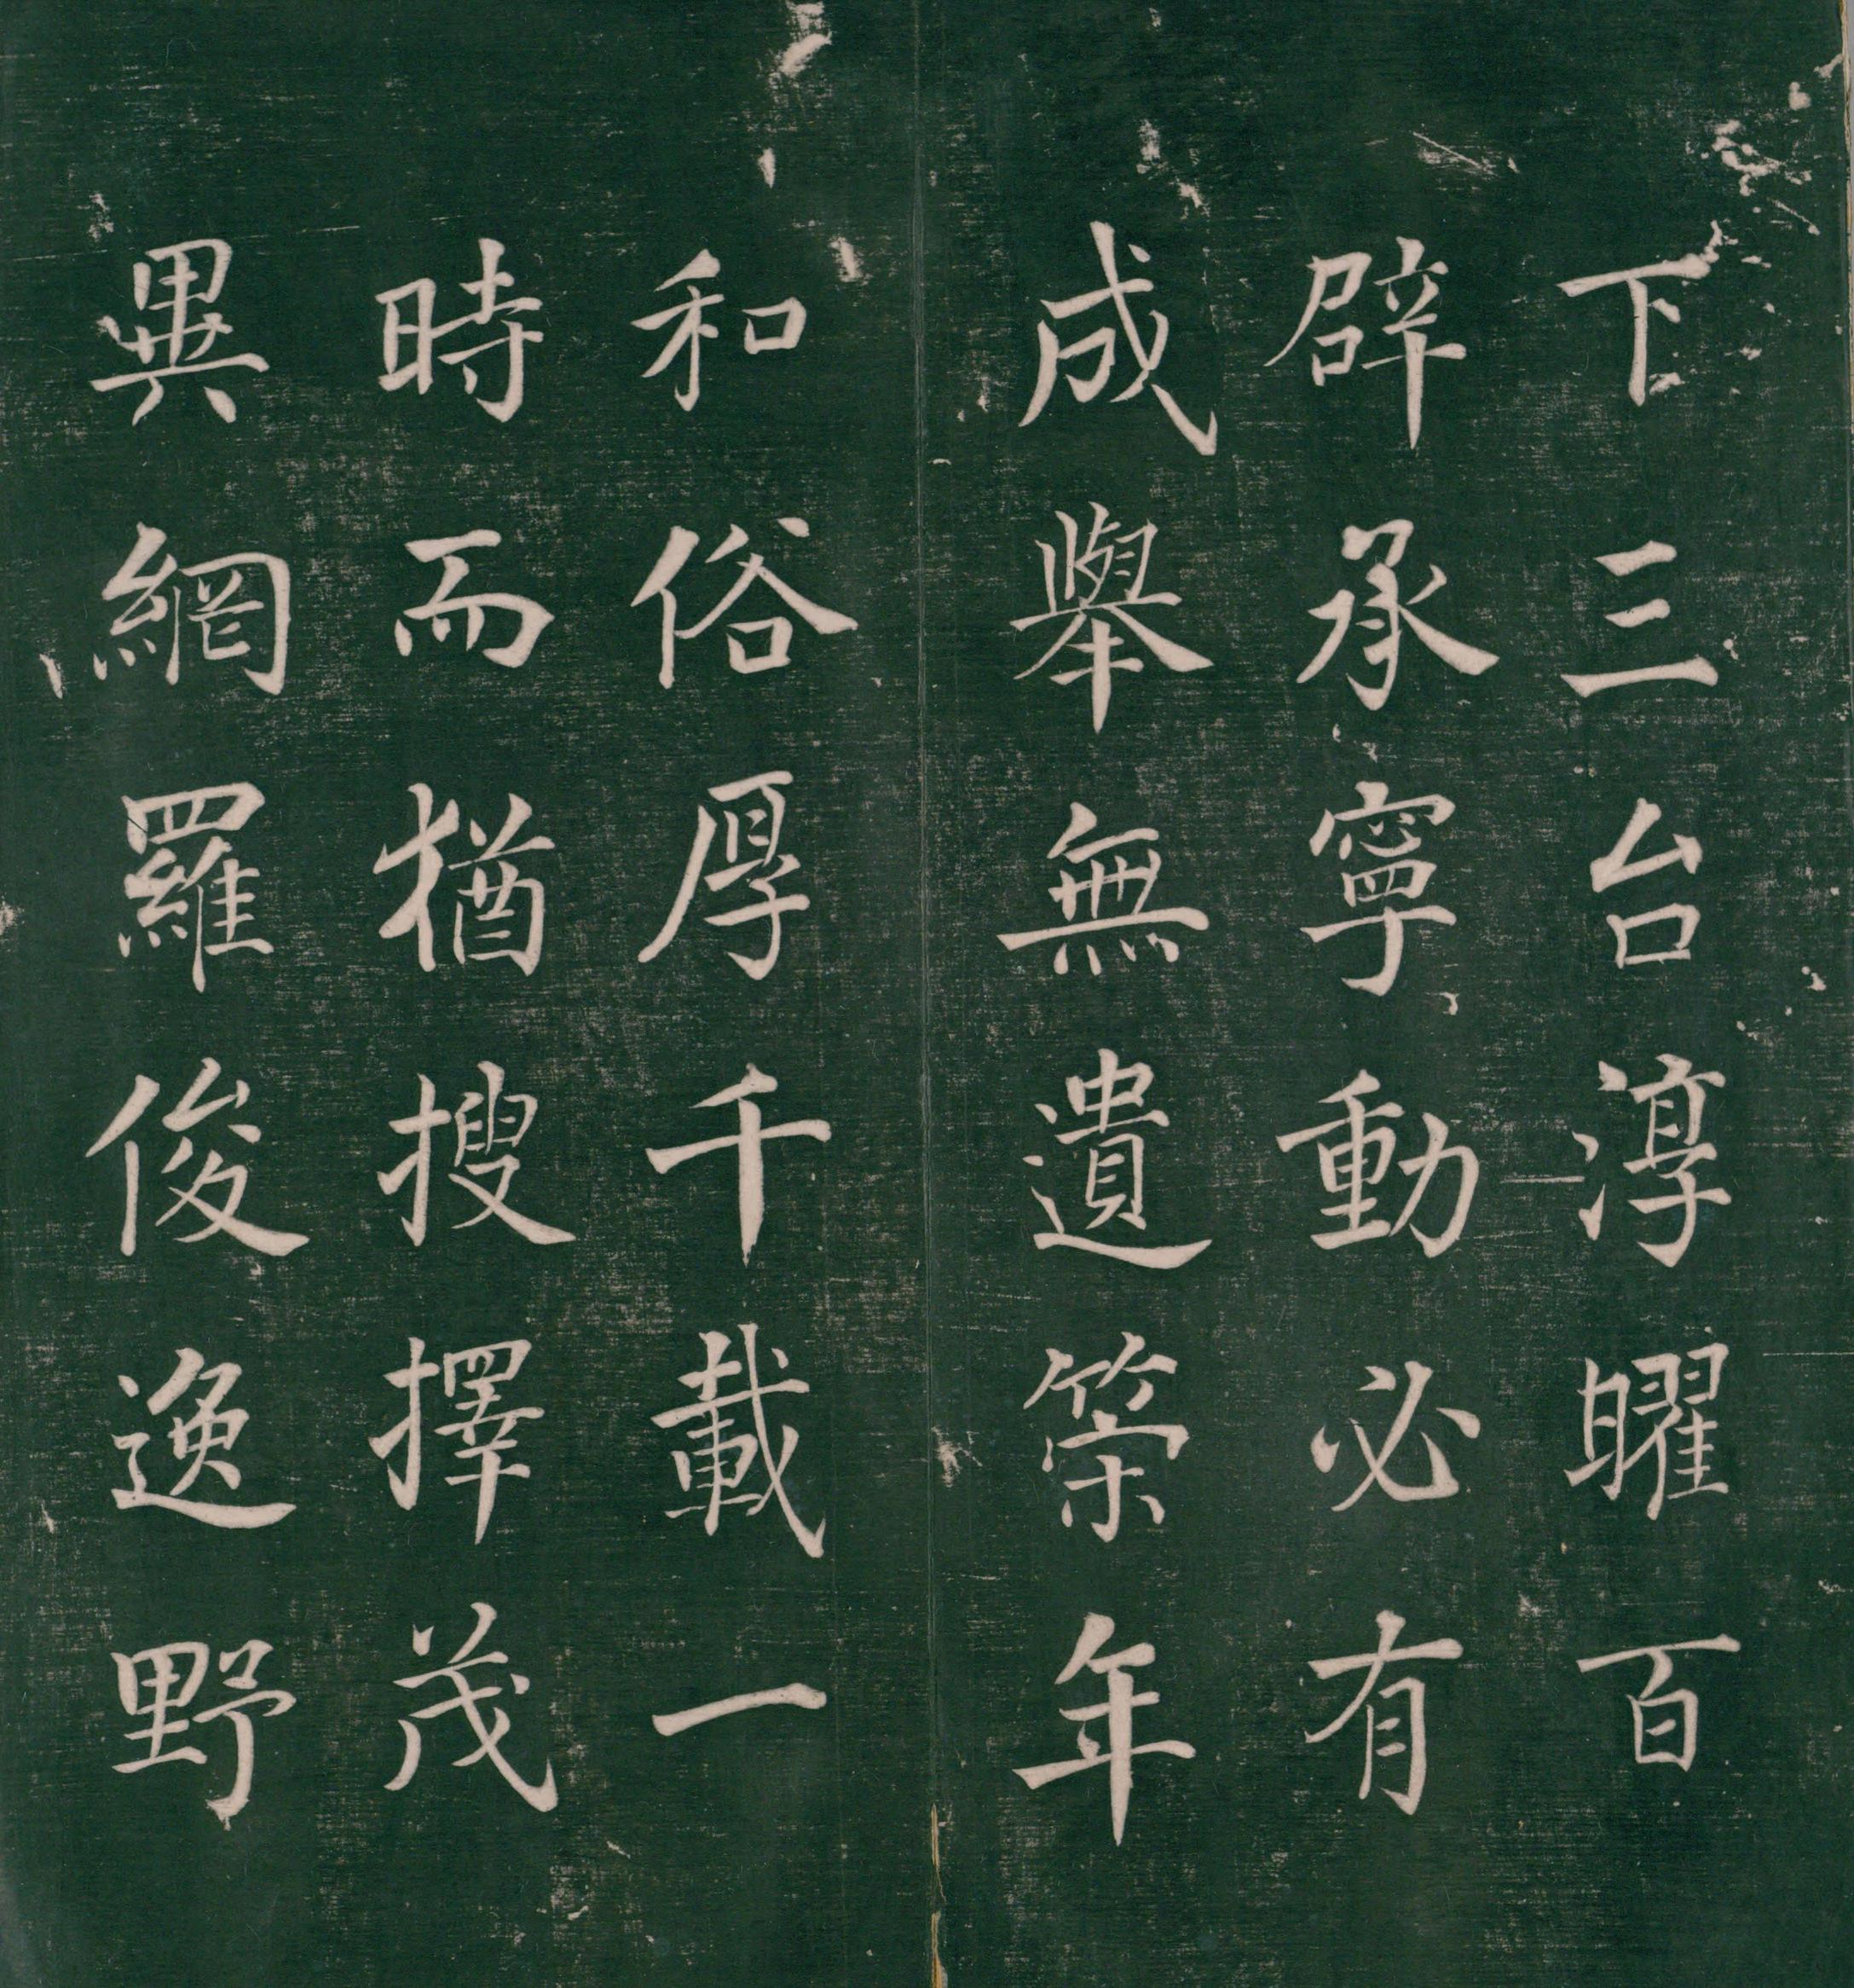 下三台淳曜百
辟承寧動必有
成舉無遺筞年
和俗厚千載一
時而猶搜擇茂
異網羅俊逸野